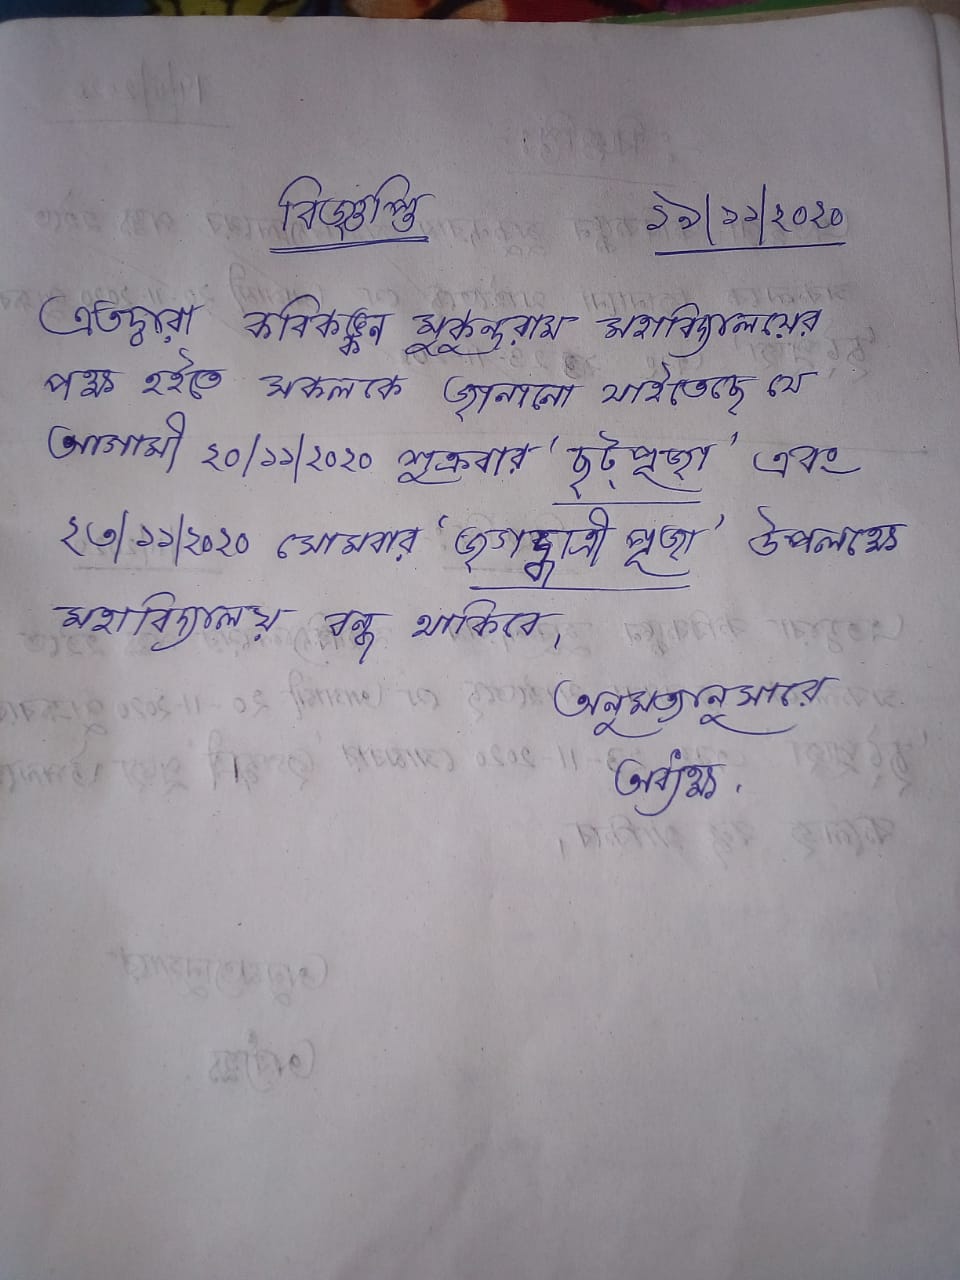 বিজ্ঞপ্তি ১৯/১১/২০২০
এতদ্বারা কবিকঙ্কন মুকুন্দরাম মহাবিদ্যালয়ের
পক্ষ হইতে সকলকে জানানো যাইতেছে যে
আগামী ২০/১১/২০২০ শুক্রবার 'ছট্পূজা' এবং
২৩/১১/২০২০ সোমবার 'জগদ্ধাত্রী পূজা' উপলক্ষে
মহাবিদ্যালয় বন্ধ থাকিবে,
অনুমত্যানুসারে
অধ্যক্ষ.